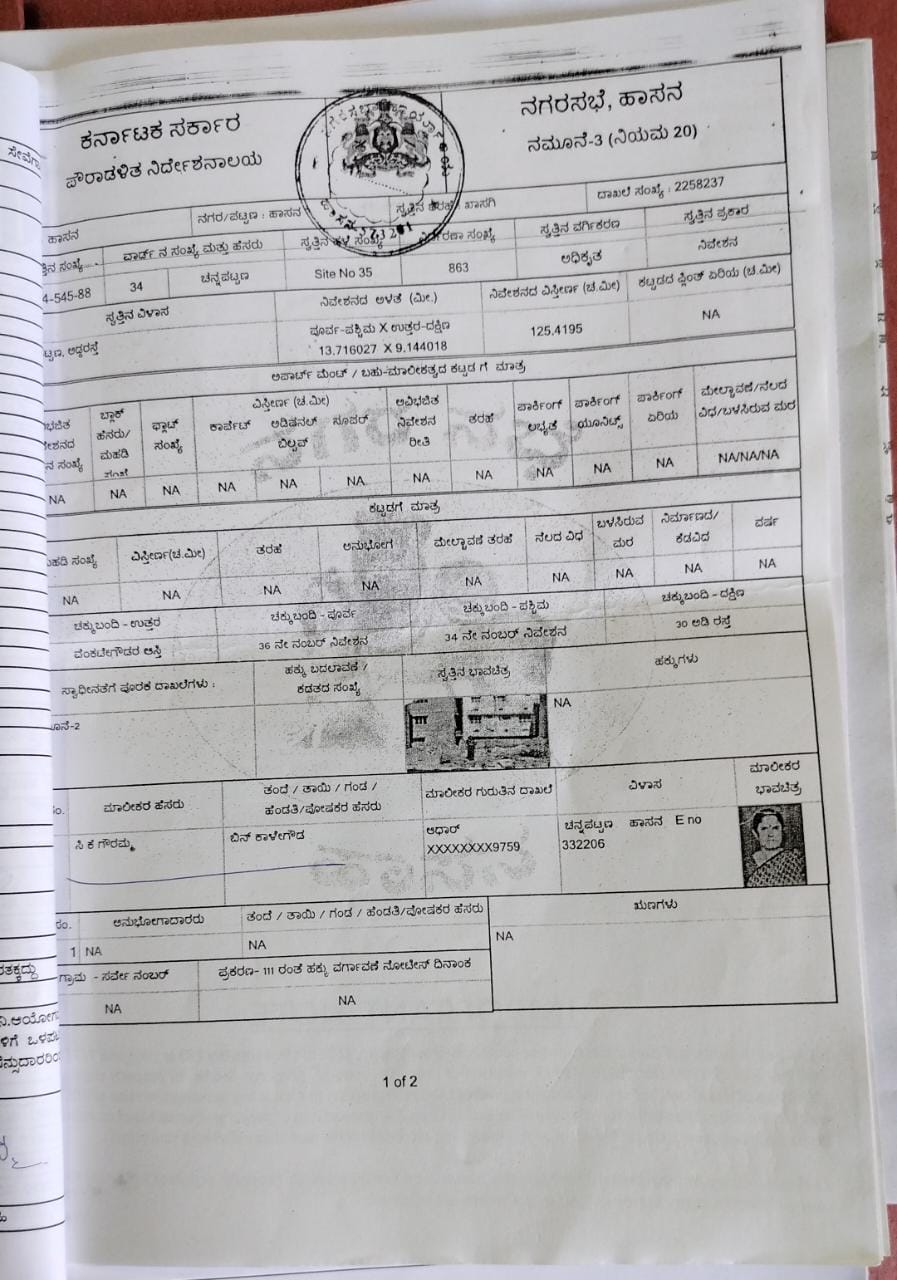 ಕರ್ನಾಟಕ ಸರ್ಕಾರ
ಪೌರಾಡಳಿತ ನಿರ್ದೇಶನಾಲಯ
ನಗರಸಭೆ, ಹಾಸನ
ನಮೂನೆ-3 (ನಿಯಮ 20)
ಹಾಸನ
ನಗರ/ಪಟ್ಟಣ : ಹಾಸನ
ಸ್ವತ್ತಿನ ತರಹೆ: ಖಾಸಗಿ
ದಾಖಲೆ ಸಂಖ್ಯೆ : 2258237
ವಾರ್ಡ್ ನ ಸಂಖ್ಯೆ ಮತ್ತು ಹೆಸರು
ಸ್ವತ್ತಿನ ಹಳೆ ಸಂಖ್ಯೆ
ಸಂಖ್ಯೆ
ಸ್ವತ್ತಿನ ವರ್ಗಿಕರಣ
ಸ್ವತ್ತಿನ ಪ್ರಕಾರ
4-545-88
34
ಚನ್ನಪಟ್ಟಣ
Site No 35
863
ಅಧಿಕೃತ
ನಿವೇಶನ
ಸ್ವತ್ತಿನ ವಿಳಾಸ
ನಿವೇಶನದ ಅಳತೆ (ಮೀ.)
ನಿವೇಶನದ ವಿಸ್ತೀರ್ಣ (ಚ.ಮೀ)
ಕಟ್ಟಡದ ಪ್ಲಿಂತ್ ಏರಿಯ (ಚ.ಮೀ)
ಟ್ಟಣ, ಅಡ್ಡರಸ್ತೆ
ಪೂರ್ವ-ಪಶ್ಚಿಮ X ಉತ್ತರ-ದಕ್ಷಿಣ
13.716027 X 9.144018
125.4195
NA
ಅಪಾರ್ಟ್ ಮೆಂಟ್ / ಬಹು-ಮಾಲೀಕತ್ವದ ಕಟ್ಟಡ ಗೆ ಮಾತ್ರ
ಬ್ಲಾಕ್ ಹೆಸರು/ ಮಹಡಿ ಸಂಖ್ಯೆ
ಫ್ಲಾಟ್ ಸಂಖ್ಯೆ
ವಿಸ್ತೀರ್ಣ (ಚ.ಮೀ)
ಕಾರ್ಪೆಟ್
ಅಡಿಷನಲ್ ಬಿಲ್ಟಪ್
ಸೂಪರ್
ಅವಿಭಜಿತ ನಿವೇಶನ ರೀತಿ
ತರಹೆ
ಪಾರ್ಕಿಂಗ್ ಲಭ್ಯತೆ
ಪಾರ್ಕಿಂಗ್ ಯೂನಿಟ್ಸ್
ಪಾರ್ಕಿಂಗ್ ಏರಿಯ
ಮೇಲ್ಛಾವಣೆ/ನೆಲದ ವಿಧ/ಬಳಸಿರುವ ಮರ
NA NA NA NA NA NA NA NA NA NA NA NA/NA/NA
ಕಟ್ಟಡಗೆ ಮಾತ್ರ
ಮಹಡಿ ಸಂಖ್ಯೆ
ವಿಸ್ತೀರ್ಣ(ಚ.ಮೀ)
ತರಹೆ
ಅನುಭೋಗ
ಮೇಲ್ಛಾವಣೆ ತರಹೆ
ನೆಲದ ವಿಧ
ಬಳಸಿರುವ ಮರ
ನಿರ್ಮಾಣದ/ ಕೆಡವಿದ
ವರ್ಷ
NA NA NA NA NA NA NA NA NA
ಚಕ್ಕುಬಂದಿ - ಉತ್ತರ
ಚಕ್ಕುಬಂದಿ - ಪೂರ್ವ
ಚಕ್ಕುಬಂದಿ - ಪಶ್ಚಿಮ
ಚಕ್ಕುಬಂದಿ - ದಕ್ಷಿಣ
ವೆಂಕಟೇಗೌಡರ ಆಸ್ತಿ
36 ನೇ ನಂಬರ್ ನಿವೇಶನ
34 ನೇ ನಂಬರ್ ನಿವೇಶನ
30 ಅಡಿ ರಸ್ತೆ
ಸ್ವಾಧೀನತೆಗೆ ಪೂರಕ ದಾಖಲೆಗಳು :
ಹಕ್ಕು ಬದಲಾವಣೆ / ಕಡತದ ಸಂಖ್ಯೆ
ಸ್ವತ್ತಿನ ಭಾವಚಿತ್ರ
ಹಕ್ಕುಗಳು
ನೂನೆ-2
NA
ಸಂ.
ಮಾಲೀಕರ ಹೆಸರು
ತಂದೆ / ತಾಯಿ / ಗಂಡ / ಹೆಂಡತಿ/ಪೋಷಕರ ಹೆಸರು
ಮಾಲೀಕರ ಗುರುತಿನ ದಾಖಲೆ
ವಿಳಾಸ
ಮಾಲೀಕರ ಭಾವಚಿತ್ರ
ಸಿ ಕೆ ಗೌರಮ್ಮ
ಬಿನ್ ಕಾಳೇಗೌಡ
ಆಧಾರ್
XXXXXXXX9759
ಚನ್ನಪಟ್ಟಣ ಹಾಸನ E no
332206
ಸಂ.
ಅನುಭೋಗದಾರರು
ತಂದೆ / ತಾಯಿ / ಗಂಡ / ಹೆಂಡತಿ/ಪೋಷಕರ ಹೆಸರು
ಋಣಗಳು
1 NA
NA
NA
ಗ್ರಾಮ - ಸರ್ವೇ ನಂಬರ್
ಪ್ರಕರಣ- 111 ರಂತೆ ಹಕ್ಕು ವರ್ಗಾವಣೆ ನೋಟೀಸ್ ದಿನಾಂಕ
NA
NA
1 of 2